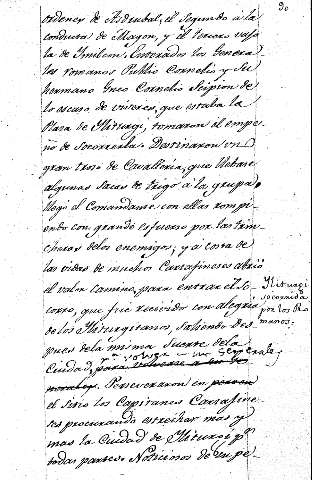 30
ordenes de Asdrubal, el segundo à la
conducta de Magon, y el tercero vajo
la de Ymilcon. Enterados los Genera-
les romanos Publio Cornelio y Su
hermano Gneo Cornelio Scipion de
lo escaso de viveres, que estaba la
Plaza de Yliturgi, tomaron el empe-
ño de socorrerla. Destinaron un
gran trozo de Cavalleria, que llebase
algunas sacas de trigo a la grupa.
Llegó el Comandante con ellas rompi-
endo con grande esfuerzo por las trin-
cheras de los enemigos; y a costa de
las vidas de muchos Cartagineses abrió
el valor camino, para entrar el So-
corro, que fue recivido con alegria
de los Yliturgitanos, saliendo des-
pues de la misma suerte de la
Ciudad, para volver a sus
generales;
Perseveraron en
el sitio los Capitanes Cartagine-
ses procurando estrechar mas y
mas la Ciudad de Yliturgi pr
todas partes. Noticiosos de su pe-
Yliturgi
socorrida
por los Ro-
manos.